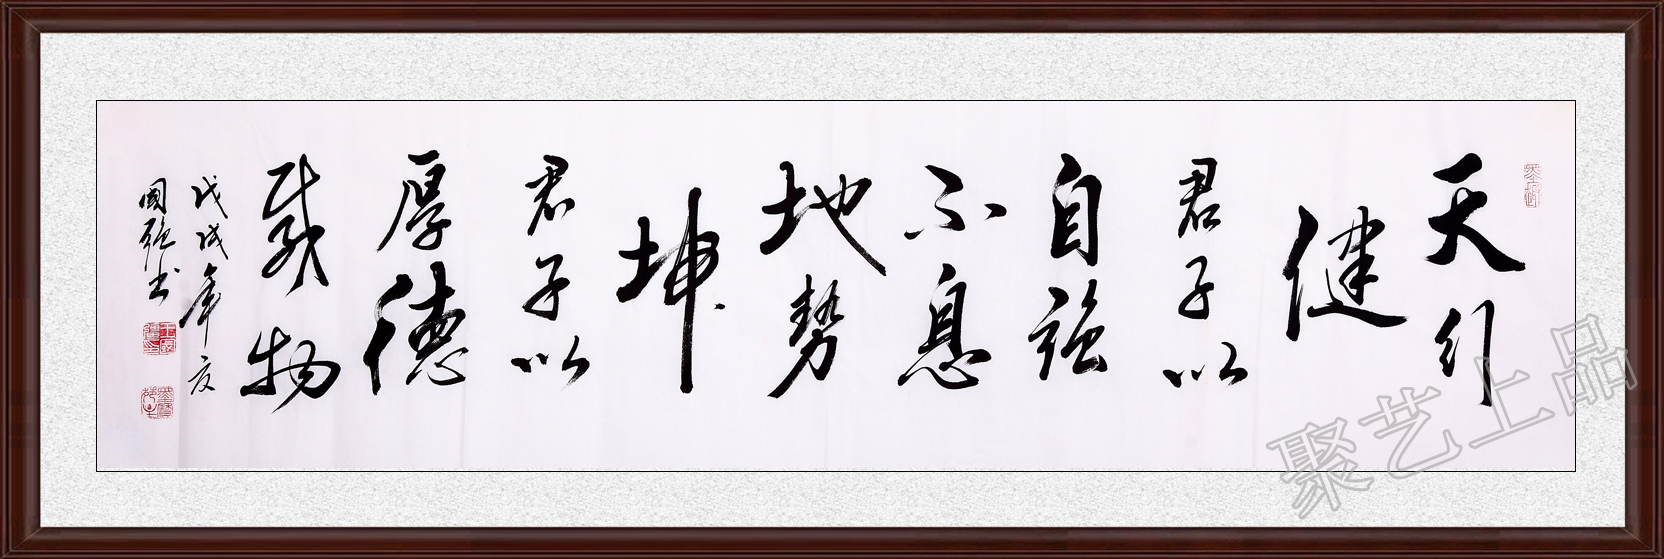 天行
健
君子以
自强
不息
地势
坤
君子以
厚德
载物
戊戌年夏
国强书
聚艺上品